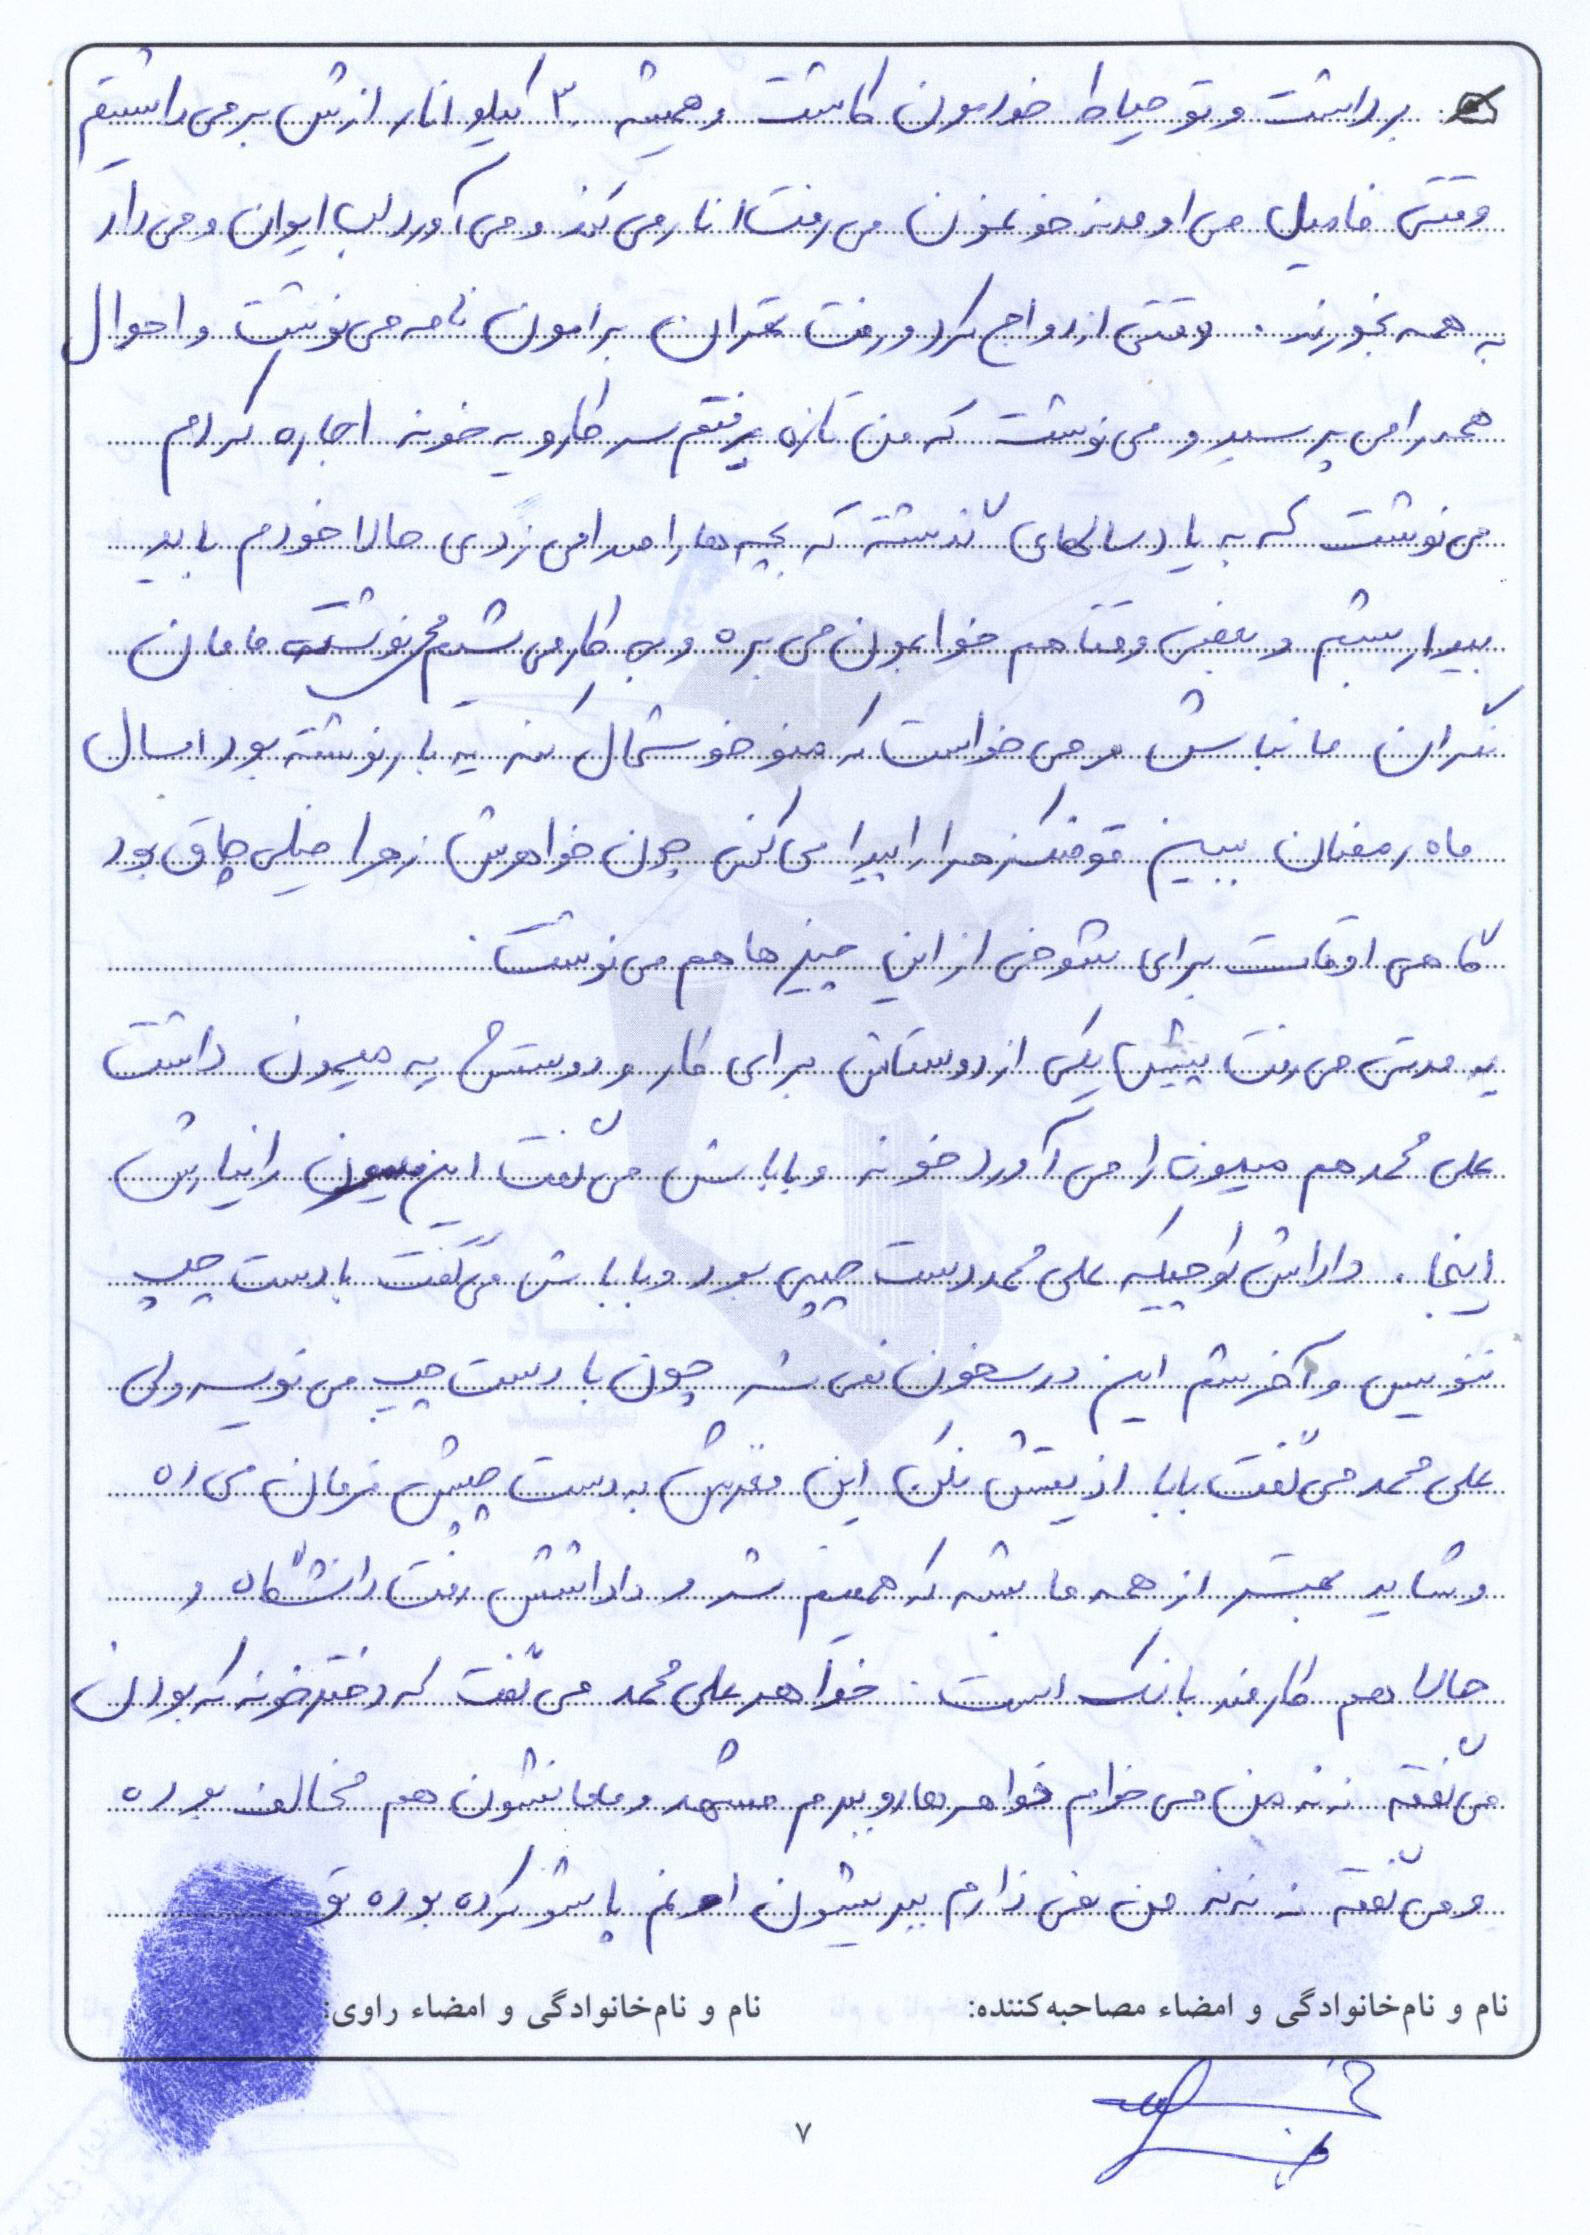 برداشت و تو حیاط خودمون کاشت و همیشه ۳۰ کیلو انار ازش بر می داشتیم
وقتی فامیل می اومدند خونمون می رفت انار می کند و می آورد لب ایوان و می داد
به همه بخورند. وقتی ازدواج کرد و رفت تهران برامون نامه می نوشت و احوال
همه را می پرسید و می نوشت که من تازه رفتم سر کار و یه خونه اجاره کردم
می نوشت که به یاد سالهای گذشته که بچه ها را صدا می زدی حالا خودم باید
بیدار بشم و بعضی وقتا هم خوابمون می بره و به کار می شیم می نوشت مامان
نگران ما نباش و می خواست که منو خوشحال کنه یه بار نوشته بود امسال
ماه رمضان ببین زهرا را پیدا می کنی چون خواهرش زهرا خیلی چاق بود
گاهی اوقات برای شوخی از این چیز ها هم می نوشت.
یه مدتی می رفت پیش یکی از دوستاش برای کار و دوستش یه میمون داشت
علی محمد هم میمون را می آورد خونه و باباش می گفت این میمون را نیارش
اینجا. داداش کوچیکه علی محمد دست چپی بود و باباش می گفت با دست چپ
ننویس و آخرشم این درسخون نمی شه چون با دست چپ می نویسه ولی
علی محمد می گفت بابا اذیتش نکن این مغزش به دست چپش فرمان می ده
و شاید بهتر از همه ما بشه که همینم شد و داداشش رفت دانشگاه و
حالا هم کارمند بانک است. خواهر علی محمد می گفت که دختر خونه که بودن
می گفته ننه من می خوام خواهرها رو ببرم مشهد و مامانشون هم مخالف بوده
و می گفته نه ننه من نمی ذارم ببریشون اونم پاشو کرده بوده تو
نام و نام‌خانوادگی و امضاء مصاحبه‌کننده:
نام و نام‌خانوادگی و امضاء راوی:
۷